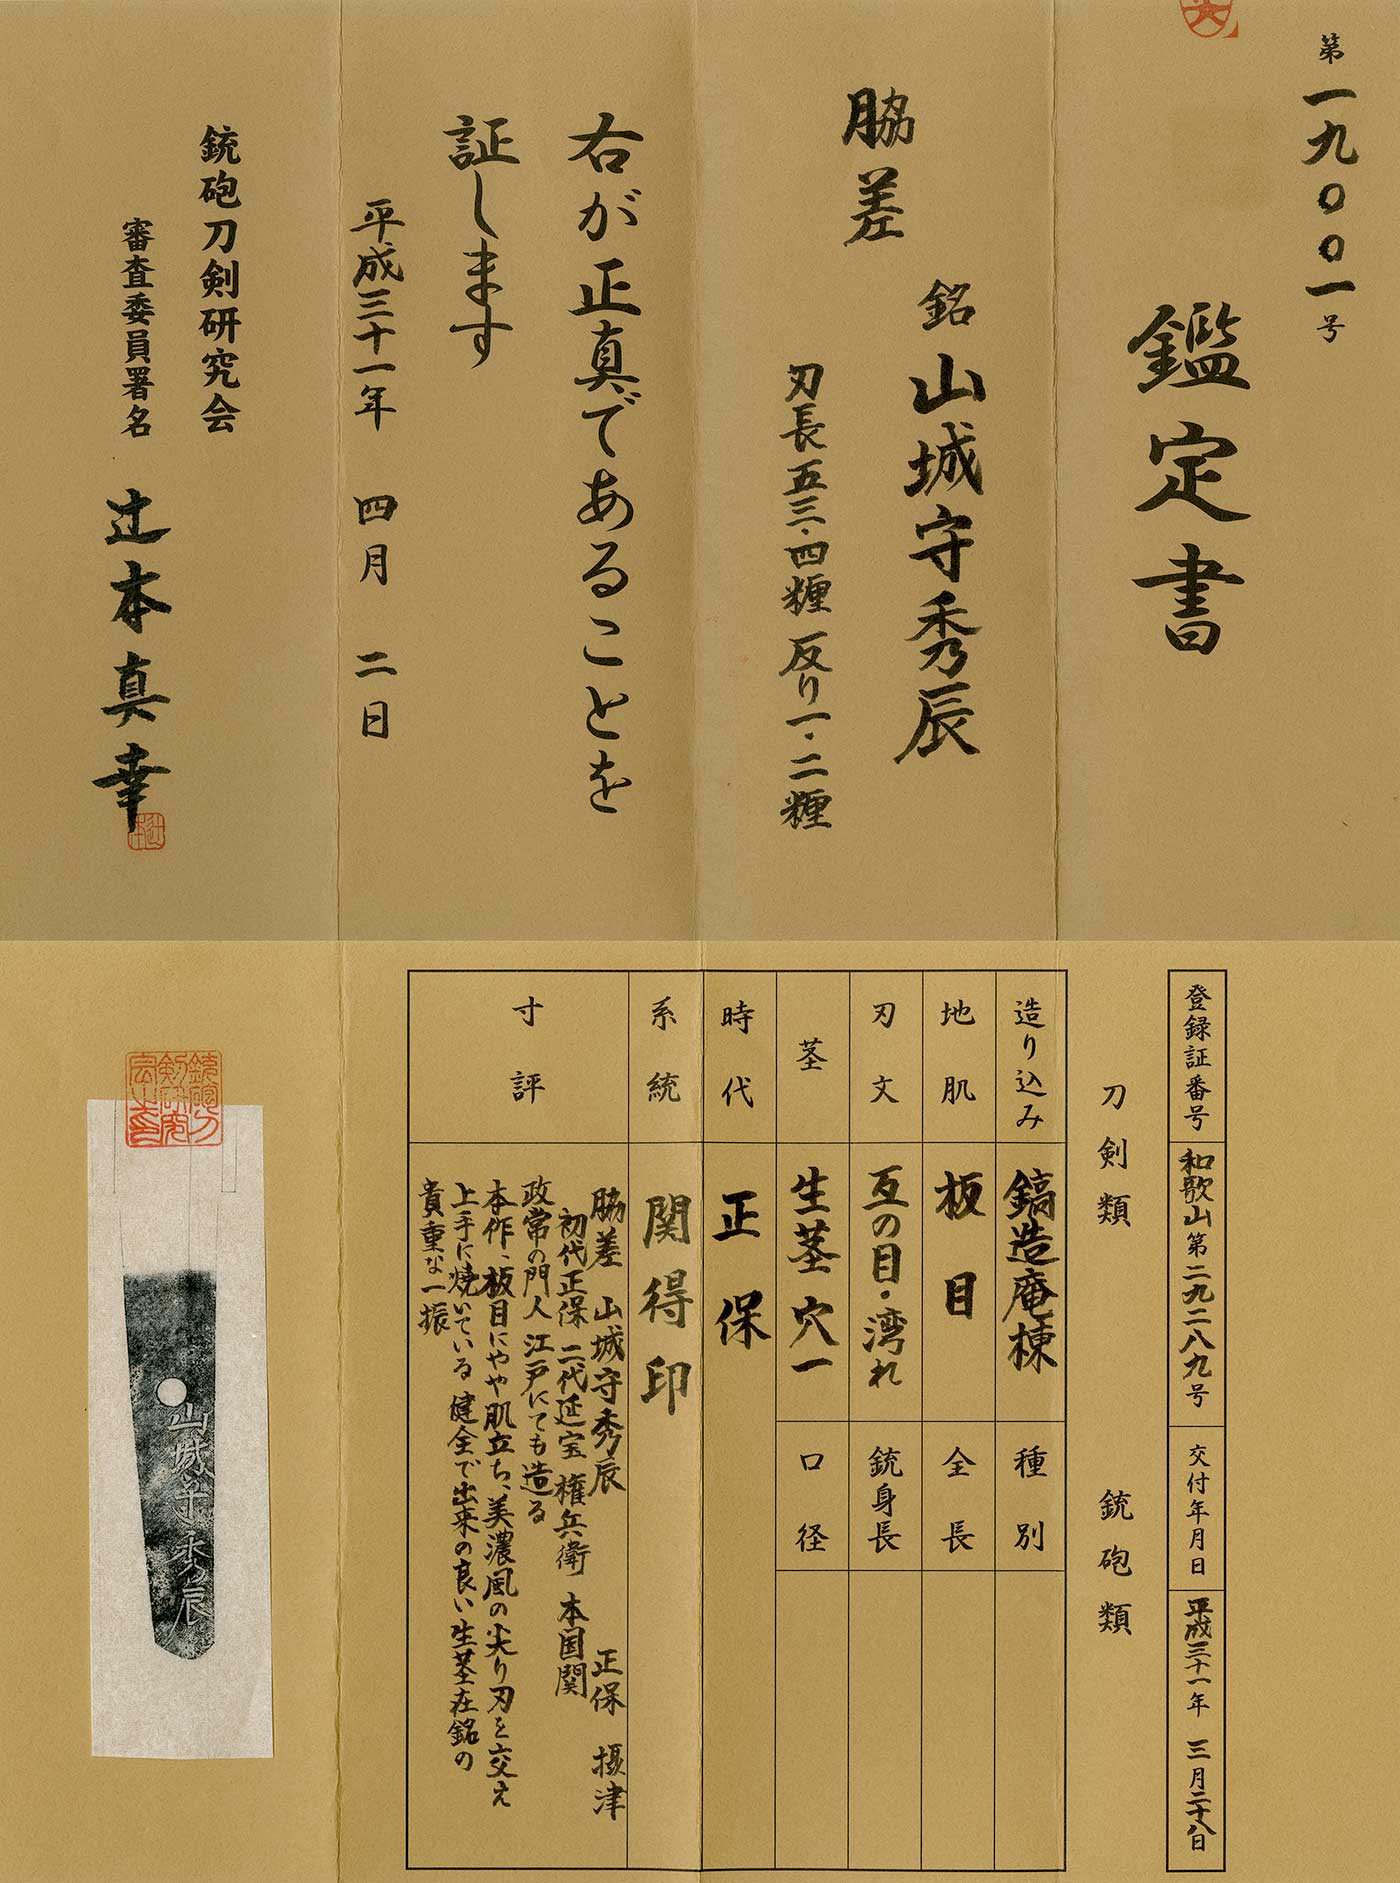 第一九〇〇一号
鑑定書
脇差
銘 山城守秀辰
刃長五三・四糎 反り一・二糎
右が正真であることを
証します
平成三十一年 四月 二日
銃砲刀剣研究会
審査委員署名 辻本真幸
登録証番号 和歌山第二九二八九号 交付年月日 平成三十一年 三月二十八日
刀剣類 銃砲類
造り込み 鎬造庵棟 種別
地肌 板目 全長
刃文 互の目・湾れ 銃身長
茎 生茎穴一 口径
時代 正保
系統 関得印
寸評
脇差 山城守秀辰 正保 摂津
初代正保 二代延宝 権兵衛 本国関
政常の門人 江戸にても造る
本作、板目にやや肌立ち、美濃風の尖り刃を交え
上手に焼いている 健全で出来の良い生茎在銘の
貴重な一振
山城守秀辰